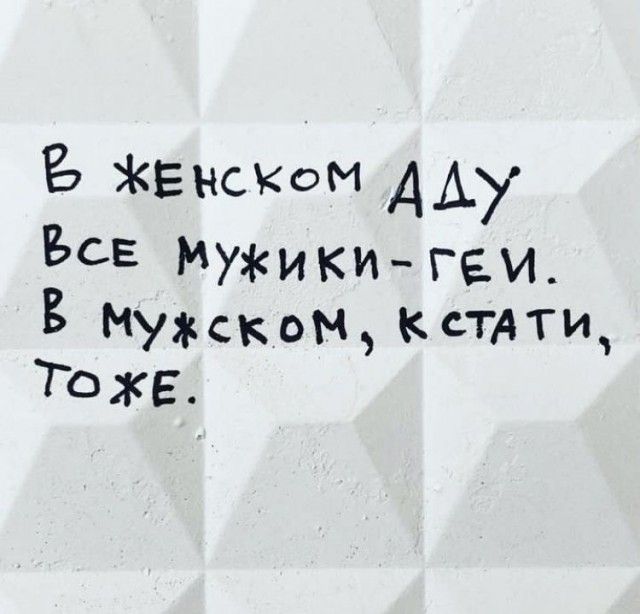 В ЖЕНСКОМ АДУ
ВСЕ МУЖИКИ-ГЕИ.
В МУЖСКОМ, КСТАТИ,
ТОЖЕ.